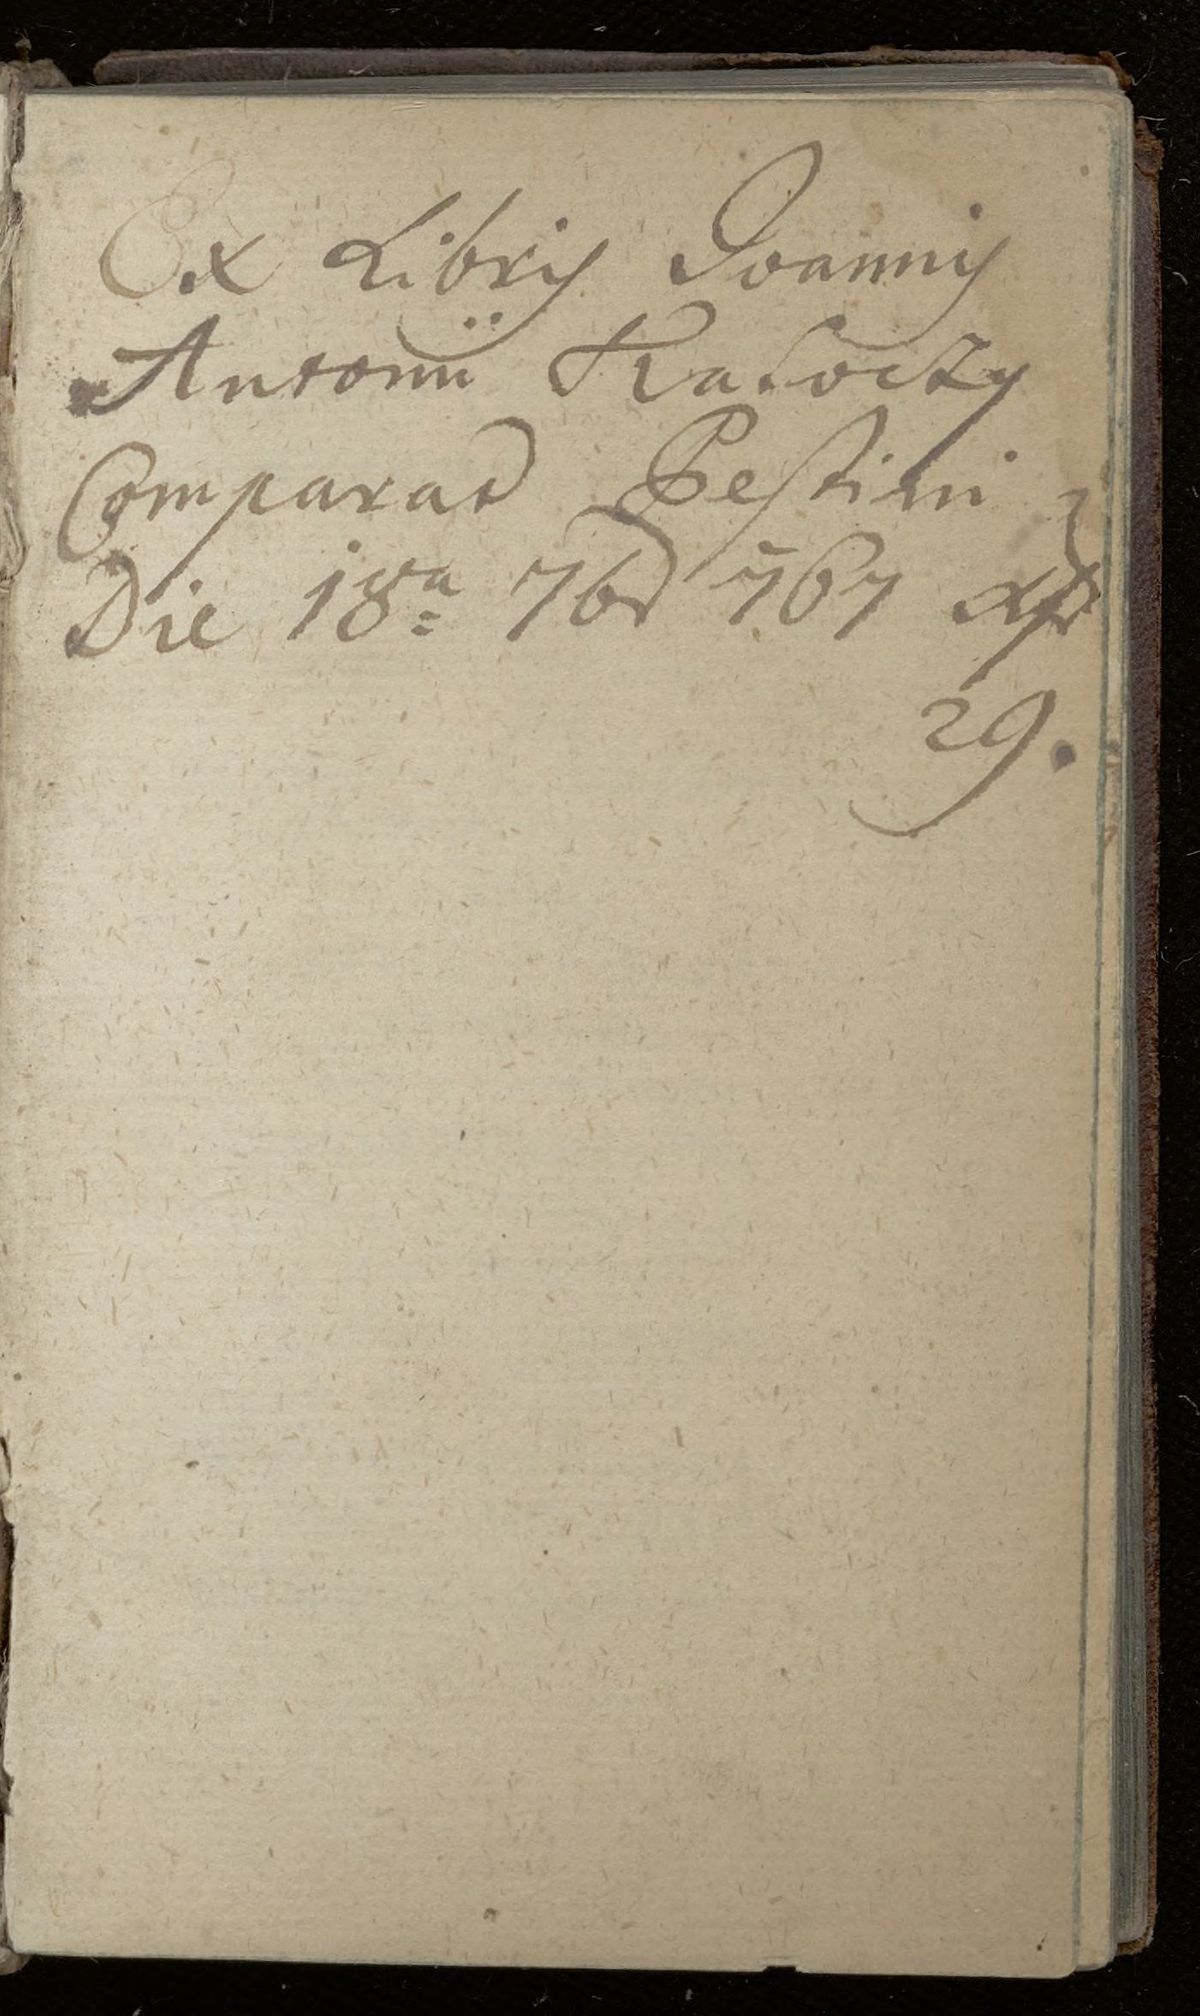 Ex Libris Joannis
Antonii
Comparat Pestini
Die 18va 7br 767 xfr
29.